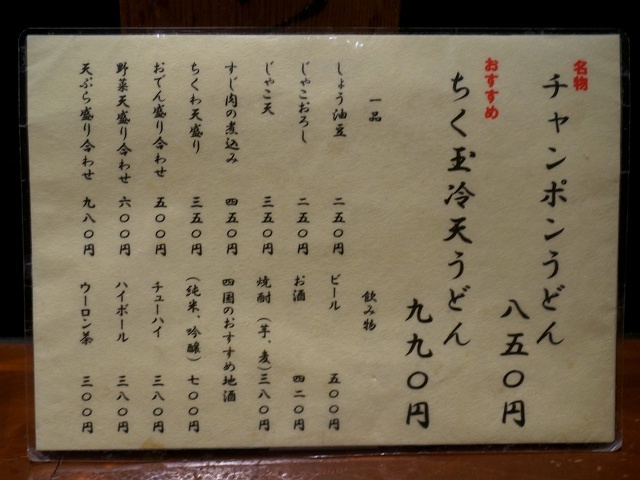 名物
チャンポンうどん
八五〇円
おすすめ
ちく玉冷天うどん
九九〇円
一品
しょう油豆 二五〇円
じゃこおろし 二五〇円
じゃこ天 三五〇円
すじ肉の煮込み 四五〇円
ちくわ天盛り 三五〇円
おでん盛り合わせ 五〇〇円
野菜天盛り合わせ 六〇〇円
天ぷら盛り合わせ 九八〇円
飲み物
ビール 五〇〇円
お酒 四二〇円
焼酎（芋、麦）三八〇円
四国のおすすめ地酒
（純米、吟醸）七〇〇円
チューハイ 三八〇円
ハイボール 三八〇円
ウーロン茶 三〇〇円